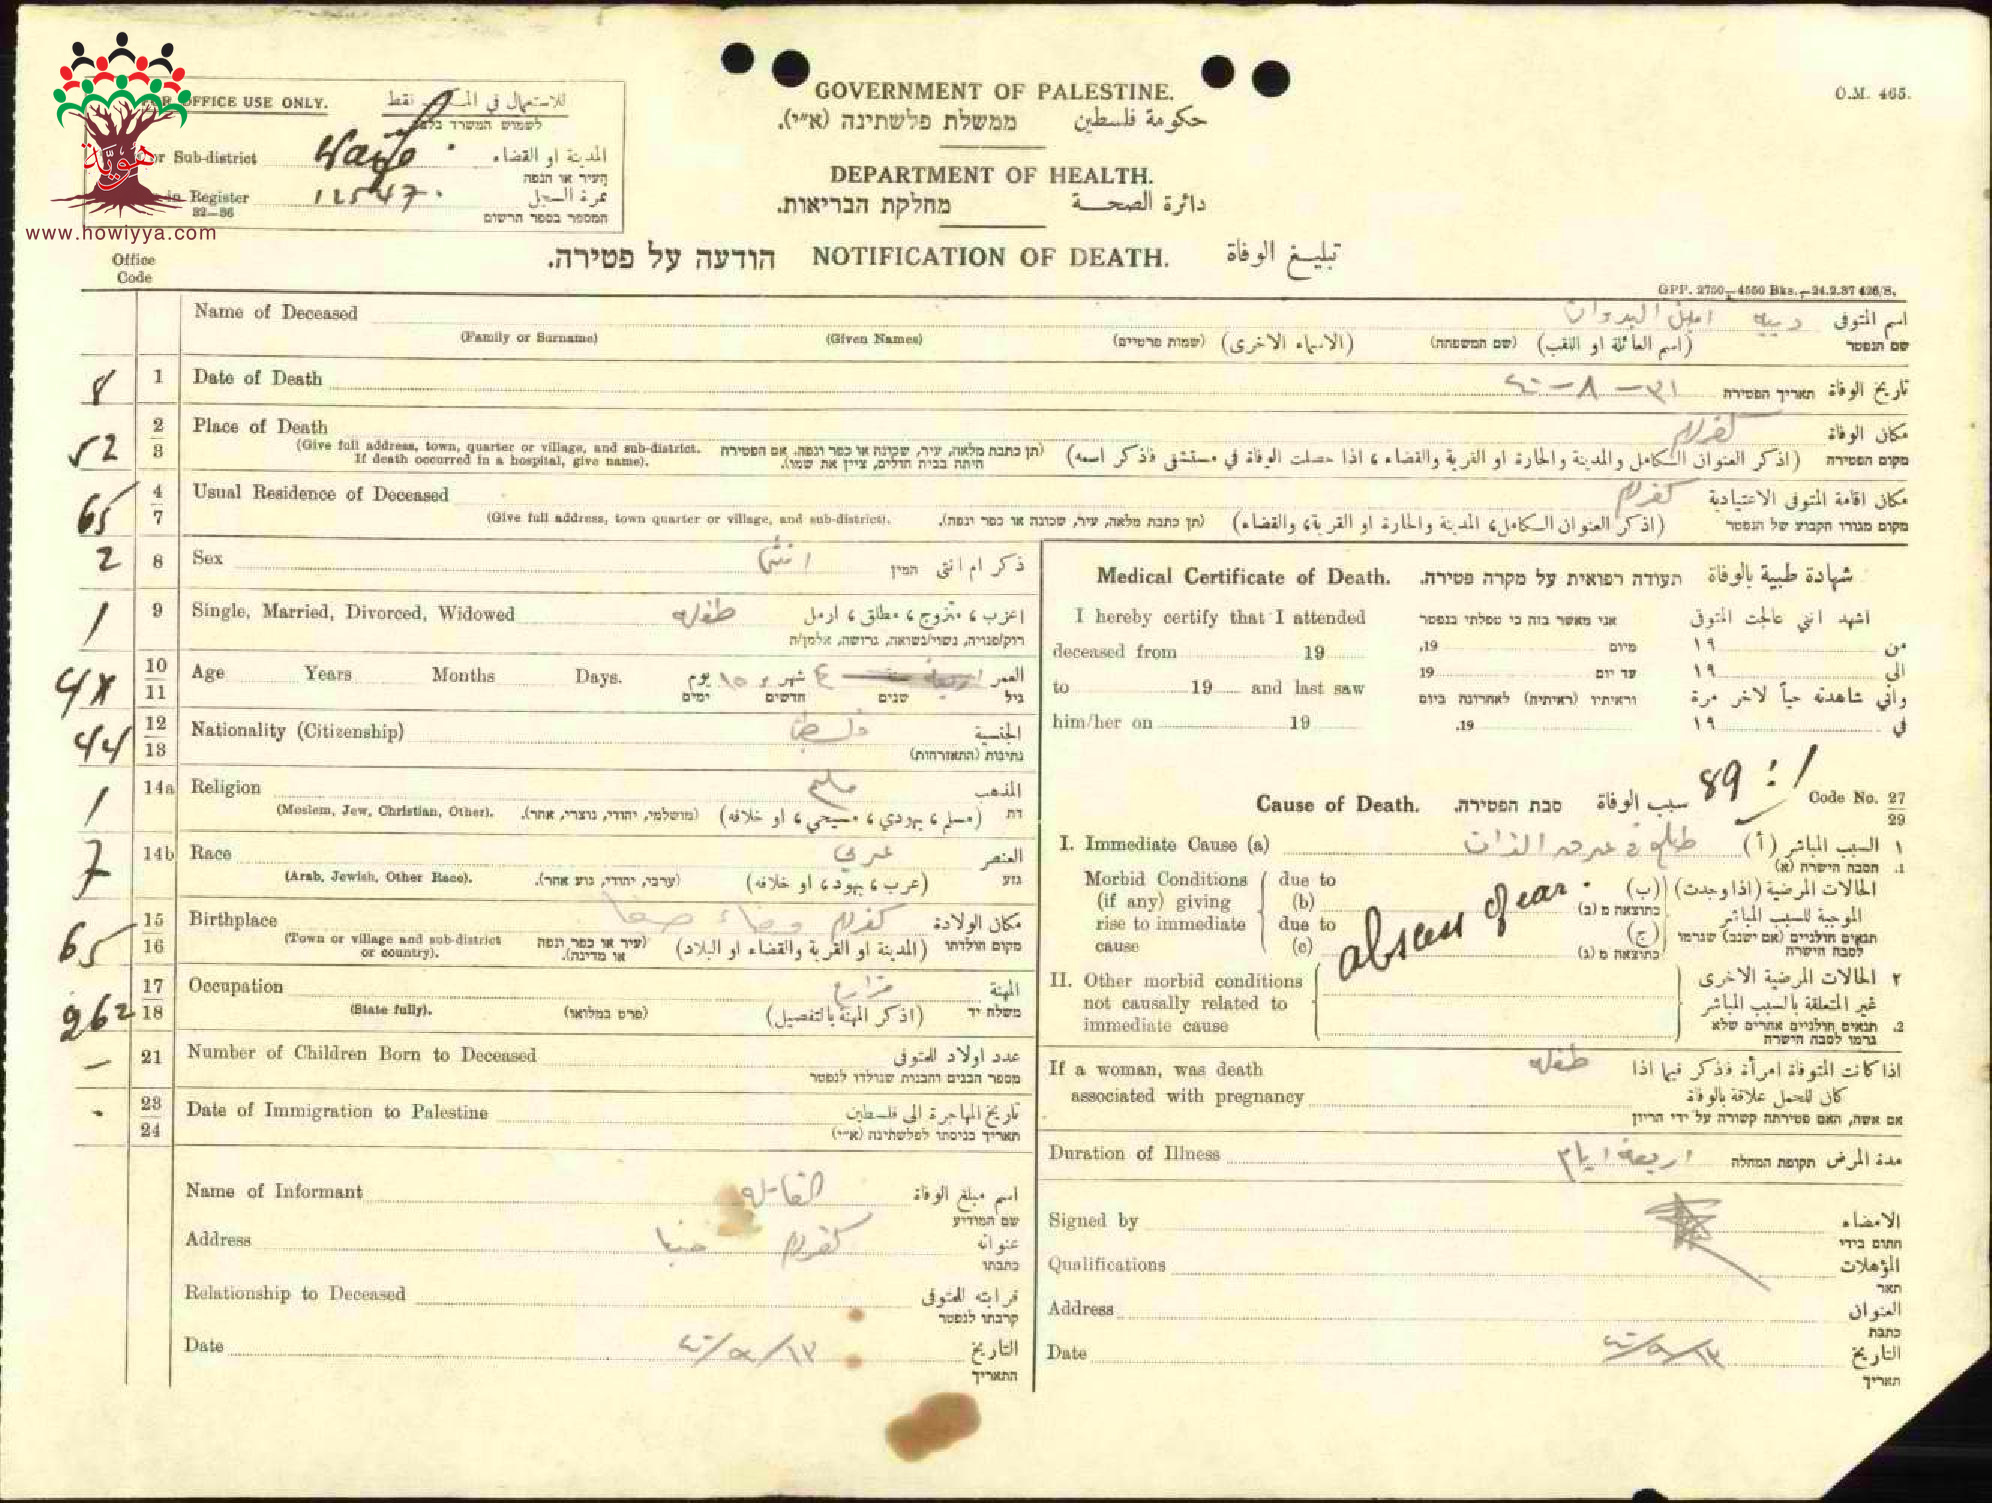 GOVERNMENT OF PALESTINE.
ממשלת פלשתינה (א״י). حكومة فلسطين
DEPARTMENT OF HEALTH.
מחלקת הבריאות. دائرة الصحة
O.M. 465.
OFFICE USE ONLY. للاستعمال في فقط
לשמוש המשרד
or Sub-district المدينة او القضاء
העיר או הנפה
in Register 12547. نمرة السجل
32—36 המספר בספר הרשום
هوية
www.howiyya.com
הודעה על פטירה. NOTIFICATION OF DEATH. تبليغ الوفاة
Office
Code
GPP. 2750—4550 Bks.—24.2.37 426/S.
Name of Deceased اسم المتوفى
(Family or Surname) (Given Names) (שמות פרטיים) (الاسماء الاخرى) (שם המשפחה) (اسم العائلة او اللقب) שם הנפטר
8 1 Date of Death ٣١ — ٨ — ٤٠ תאריך הפטירה تاريخ الوفاة
52 2 3 Place of Death كفرلام مكان الوفاة
(Give full address, town, quarter or village, and sub-district. (תן כתבת מלאה, עיר, שכונה או כפר ונפה. אם הפטירה
If death occurred in a hospital, give name). היתה בבית חולים, ציין את שמו). (اذكر العنوان الكامل والمدينة والحارة او القرية والقضاء، اذا حصلت الوفاة في مستشفى فاذكر اسمه) מקום הפטירה
65 4 7 Usual Residence of Deceased كفرلام مكان اقامة المتوفى الاعتيادية
(Give full address, town quarter or village, and sub-district). (תן כתבת מלאה, עיר, שכונה או כפר ונפה). (اذكر العنوان الكامل، المدينة والحارة او القرية، والقضاء) מקום מגורו הקבוע של הנפטר
2 8 Sex انثى המין ذكر ام انثى
1 9 Single, Married, Divorced, Widowed طفله اعزب، متزوج، مطلق، ارمل
רוק/פנויה, נשוי/נשואה, גרושה, אלמן/ה
4x 10 11 Age Years Months Days. يوم ١٥ شهر ٤ العمر
ימים חדשים שנים גיל
44 12 13 Nationality (Citizenship) الجنسية
נתינות (התאזרחות)
1 14a Religion مسلم المذهب
(Moslem, Jew, Christian, Other). (מושלמי, יהודי, נוצרי, אחר). (مسلم، يهودي، مسيحي، او خلافه) דת
7 14b Race عربي العنصر
(Arab, Jewish, Other Race). (ערבי, יהודי, גזע אחר). (عرب، يهود، او خلافه) גזע
65 15 16 Birthplace كفرلام قضاء حيفا مكان الولادة
(Town or village and sub-district or country). (עיר או כפר, ונפה או מדינה). (المدينة او القرية والقضاء او البلاد) מקום הולדתו
262 17 18 Occupation مزارع المهنة
(State fully). (פרט במלואו) (اذكر المهنة بالتفصيل) משלח יד
— 21 Number of Children Born to Deceased عدد اولاد المتوفى
מספר הבנים והבנות שנולדו לנפטר
- 23 24 Date of Immigration to Palestine تاريخ المهاجرة الى فلسطين
תאריך כניסתו לפלשתינה (א״י)
Name of Informant القابله اسم مبلغ الوفاة
שם המודיע
Address كفرلام حيفا عنوانه
כתבתו
Relationship to Deceased قرابته للمتوفى
קרבתו לנפטר
Date ١٣/٩/٤٠ التاريخ
התאריך
Medical Certificate of Death. תעודה רפואית על מקרה פטירה. شهادة طبية بالوفاة
I hereby certify that I attended אני מאשר בזה כי טפלתי בנפטר اشهد انني عالجت المتوفى
deceased from 19 19, מיום ١٩ من
to 19 and last saw 19 עד יום ١٩ الى
וראיתיו (ראיתיה) לאחרונה ביום واني شاهدته حياً لاخر مرة
him/her on 19 19. ١٩ في
89:1
Cause of Death. סבת הפטירה. سبب الوفاة Code No. 27 29
I. Immediate Cause (a) السبب المباشر (أ) ١
הסבה הישרה (א) .1
Morbid Conditions (if any) giving rise to immediate cause
due to (b)
due to (c)
absess of ear.
الحالات المرضية (اذا وجدت) (ب)
כתוצאה מ (ב) الموجبة للسبب المباشر
תנאים חולניים (אם ישנם) שגרמו לסבה הישרה (ج)
כתוצאה מ (ג)
II. Other morbid conditions not causally related to immediate cause
٢ الحالات المرضية الاخرى
غير المتعلقة بالسبب المباشر
2. תנאים חולניים אחרים שלא
גרמו לסבה הישרה
If a woman, was death طفله اذا كانت المتوفاة امرأة فذكر فيما اذا
associated with pregnancy كان للحمل علاقة بالوفاة
אם אשה, האם פטירתה קשורה על ידי הריון
Duration of Illness اربعة ايام תקופת המחלה مدة المرض
Signed by الامضاء
חתום בידי
Qualifications المؤهلات
תאר
Address العنوان
כתבת
Date ١٣/٩/٤٠ التاريخ
תאריך